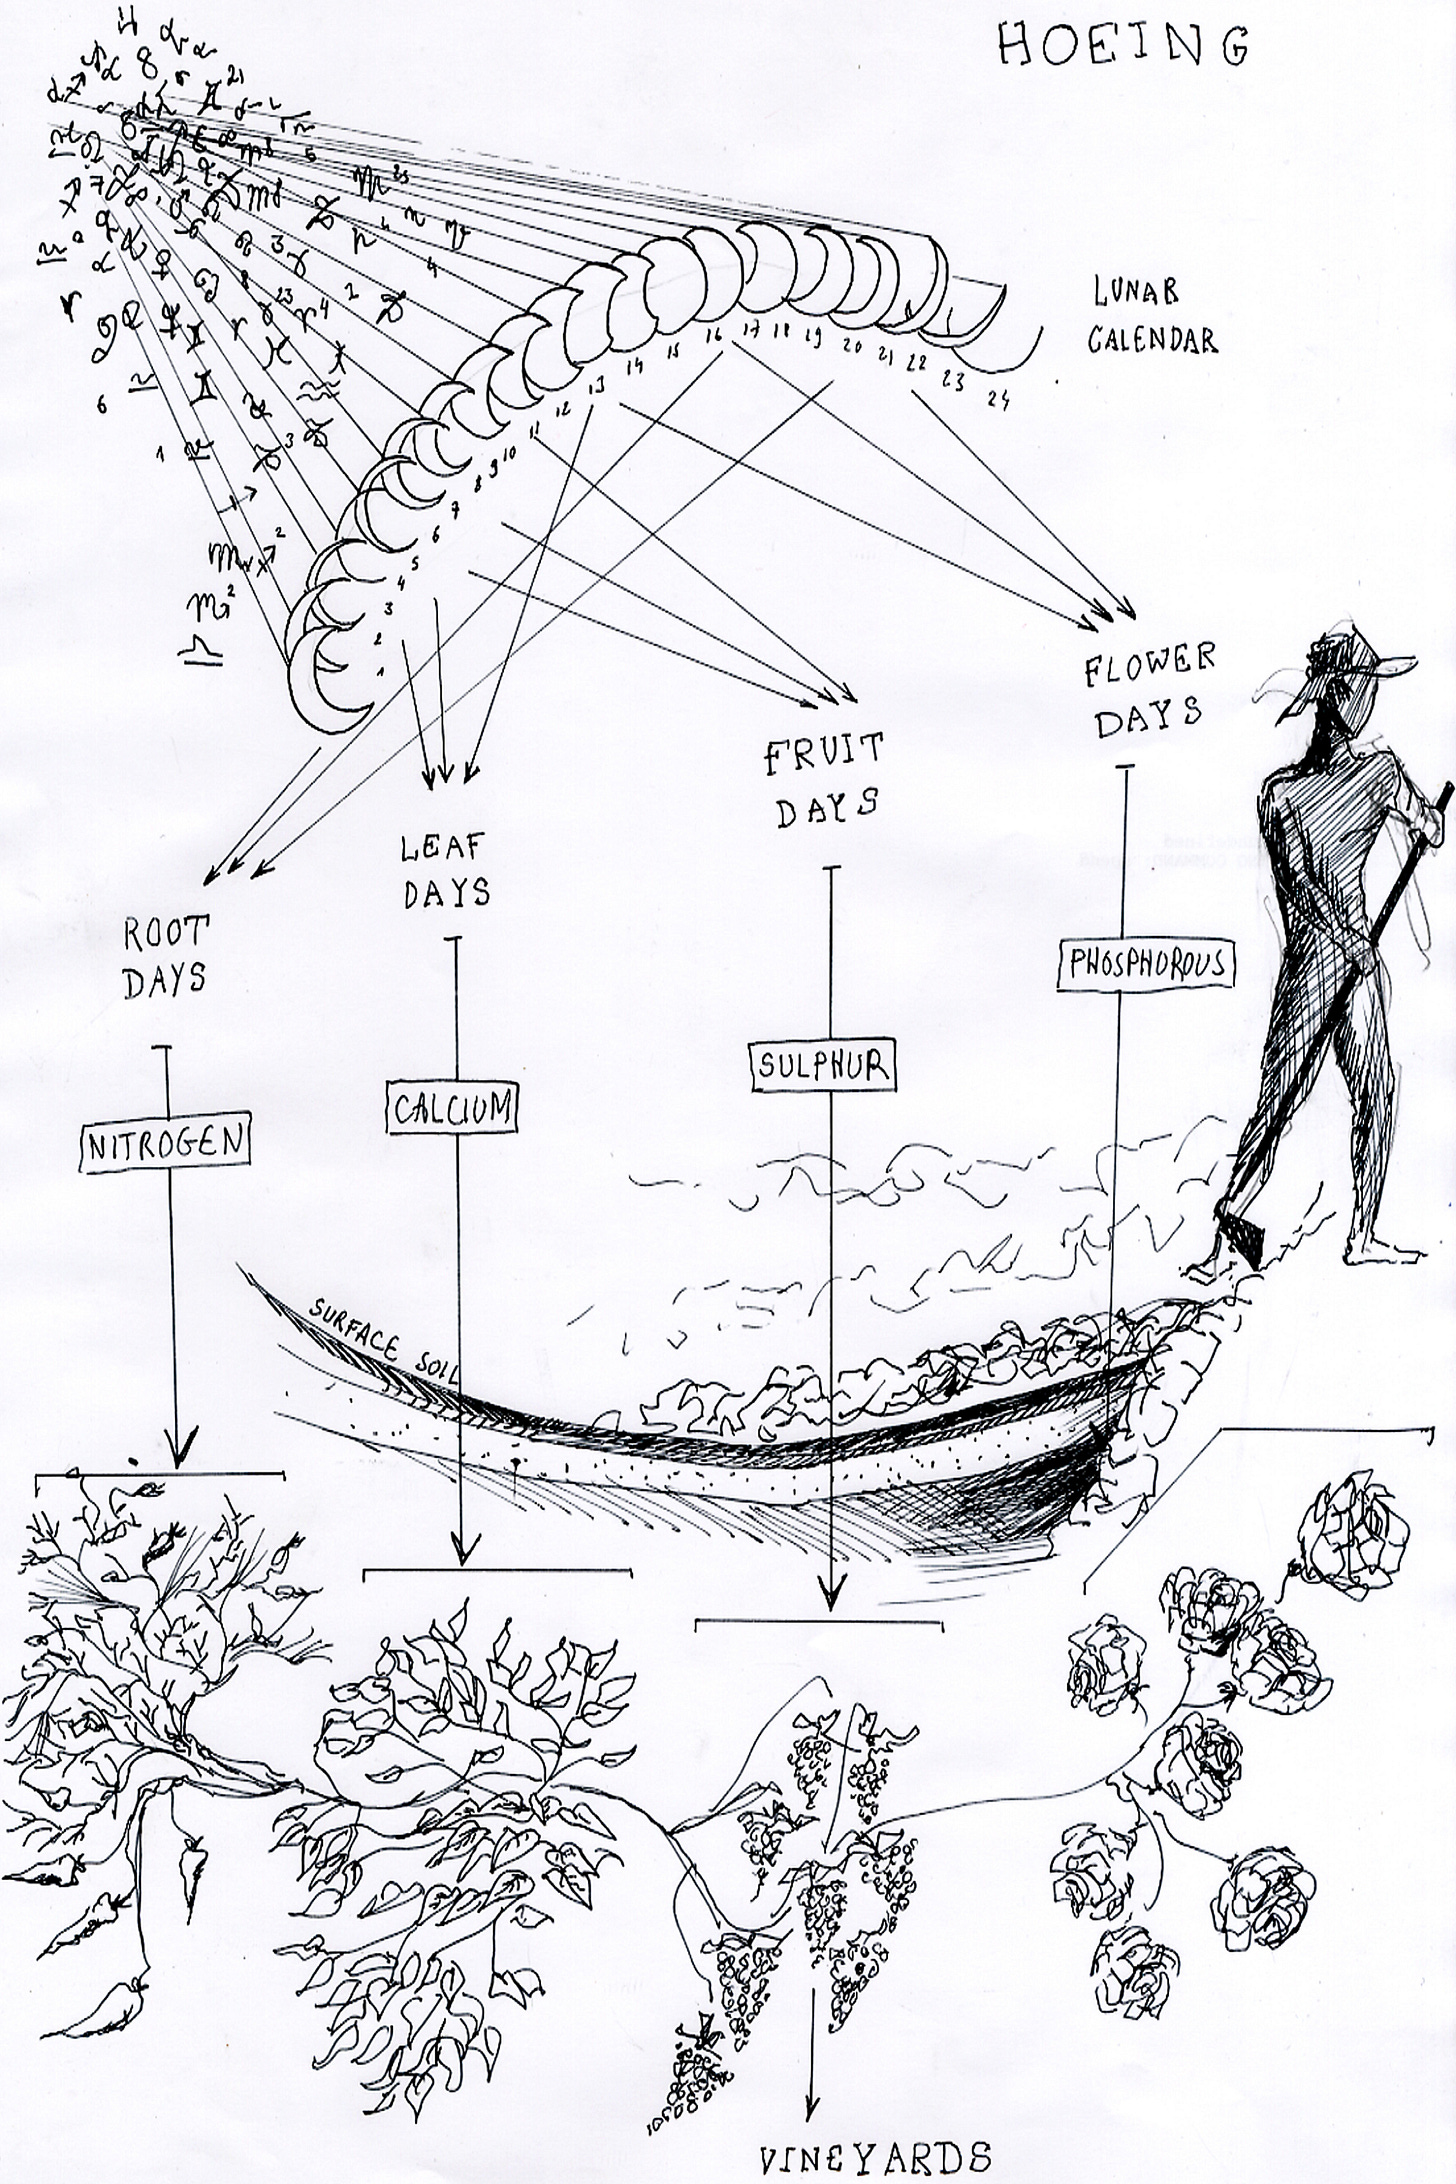 HOEING
LUNAR
CALENDAR
1
2
3
4
5
6
7
8
9
10
11
12
13
14
15
16
17
18
19
20
21
22
23
24
FLOWER
DAYS
FRUIT
DAYS
LEAF
DAYS
ROOT
DAYS
PHOSPHOROUS
SULPHUR
CALCIUM
NITROGEN
SURFACE SOIL
VINEYARDS